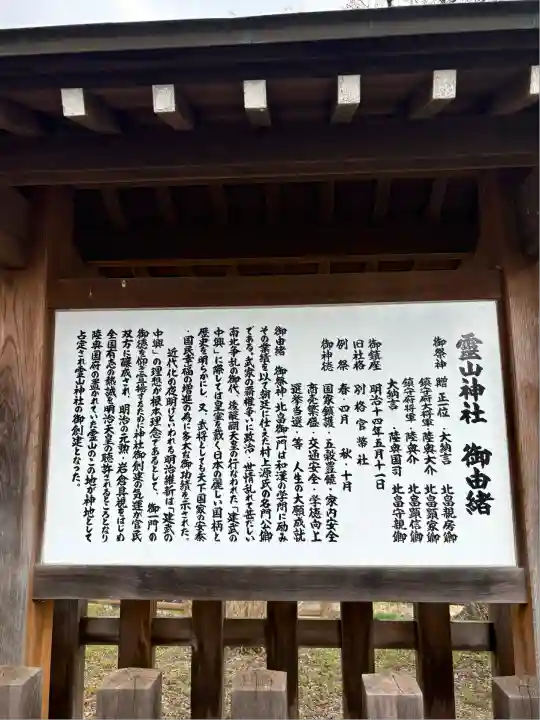 霊山神社 御由緒
御祭神 贈正位・大納言 北畠親房卿
鎮守府大将軍・陸奥大介 北畠顕家卿
鎮守府将軍・陸奥介 北畠顕信卿
大納言・陸奥国司 北畠守親卿
御鎮座 明治十四年五月十一日
旧社格 別格官幣社
例祭 春・四月 秋・十月
御神徳 国家鎮護・五穀豊穣・家内安全
商売繁盛・交通安全・学徳向上
選挙当選・等 人生の大願成就
御由緒 御祭神・北畠御一門は和漢の学問に励み
その業績を以て朝廷に仕えた村上源氏の名門公卿
である。武家の覇権争いに政治・世情乱れて甚だしい
南北争乱の御代、後醍醐天皇の行なわれた「建武の
中興」に際しては皇室を戴く日本の麗しい国柄と
歴史を明らかにし、又、武将としても天下国家の安泰
・国民幸福の増進の為に多大な御功績を示された。
近代化の夜明けといわれる明治維新は「建武の
中興」の理想が根本理念であるのとして、御一門の
御徳を仰ぎ霊山するために神社御創建の気運が官民
双方に醸成され、明治の元勲・岩倉具視をはじめ
全国有志の熱誠を明治天皇の聴許されるところとなり
陸奥国府の置かれていた霊山のこの地が神地として
占定され霊山神社の御創建となった。